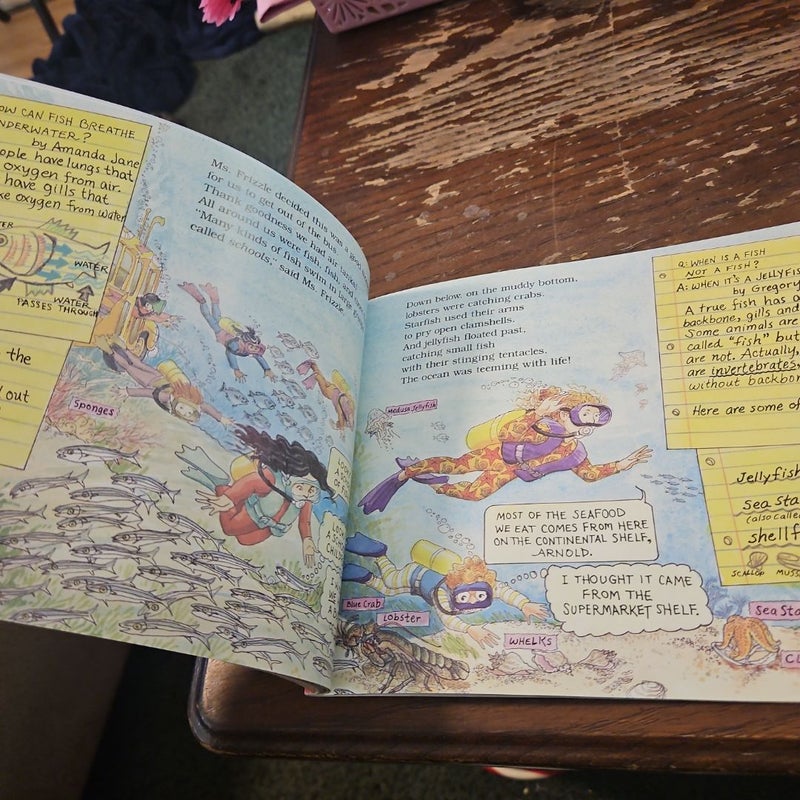 OW CAN FISH BREATHE
NDERWATER?
by Amanda Jane
ople have lungs that
oxygen from air.
have gills that
ke oxygen from water
TER
WATER
WATER
PASSES THROUGH
the
out
Ms. Frizzle decided this was a
for us to get out of the bus.
Thank goodness we had air tanks!
All around us were fish, fish, and
"Many kinds of fish swim in large
called schools," said Ms. Frizzle.
Sponges
Down below, on the muddy bottom,
lobsters were catching crabs.
Starfish used their arms
to pry open clamshells.
And jellyfish floated past,
catching small fish
with their stinging tentacles.
The ocean was teeming with life!
Medusa Jellyfish
MOST OF THE SEAFOOD
WE EAT COMES FROM HERE
ON THE CONTINENTAL SHELF,
ARNOLD.
I THOUGHT IT CAME
FROM THE
SUPERMARKET SHELF.
Blue Crab
Lobster
WHELKS
Q: WHEN IS A FISH
NOT A FISH?
A: WHEN IT'S A JELLYFIS
by Gregory
A true fish has a
backbone, gills and
Some animals are
called "fish" but
are not. Actually,
are invertebrates,
without backbon
Here are some of
Jellyfish
sea sta
(also calle
shellf
SCALLOP MUSS
Sea Sta
Cl